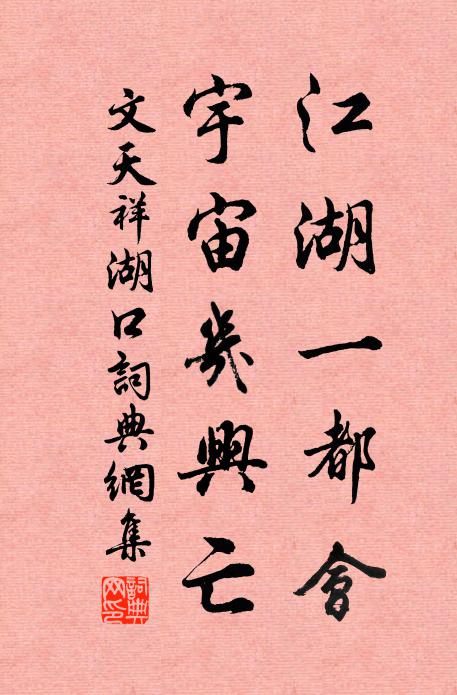 江湖一都會
宇宙幾興亡
文天祥湖口詞典網集
詞典網印